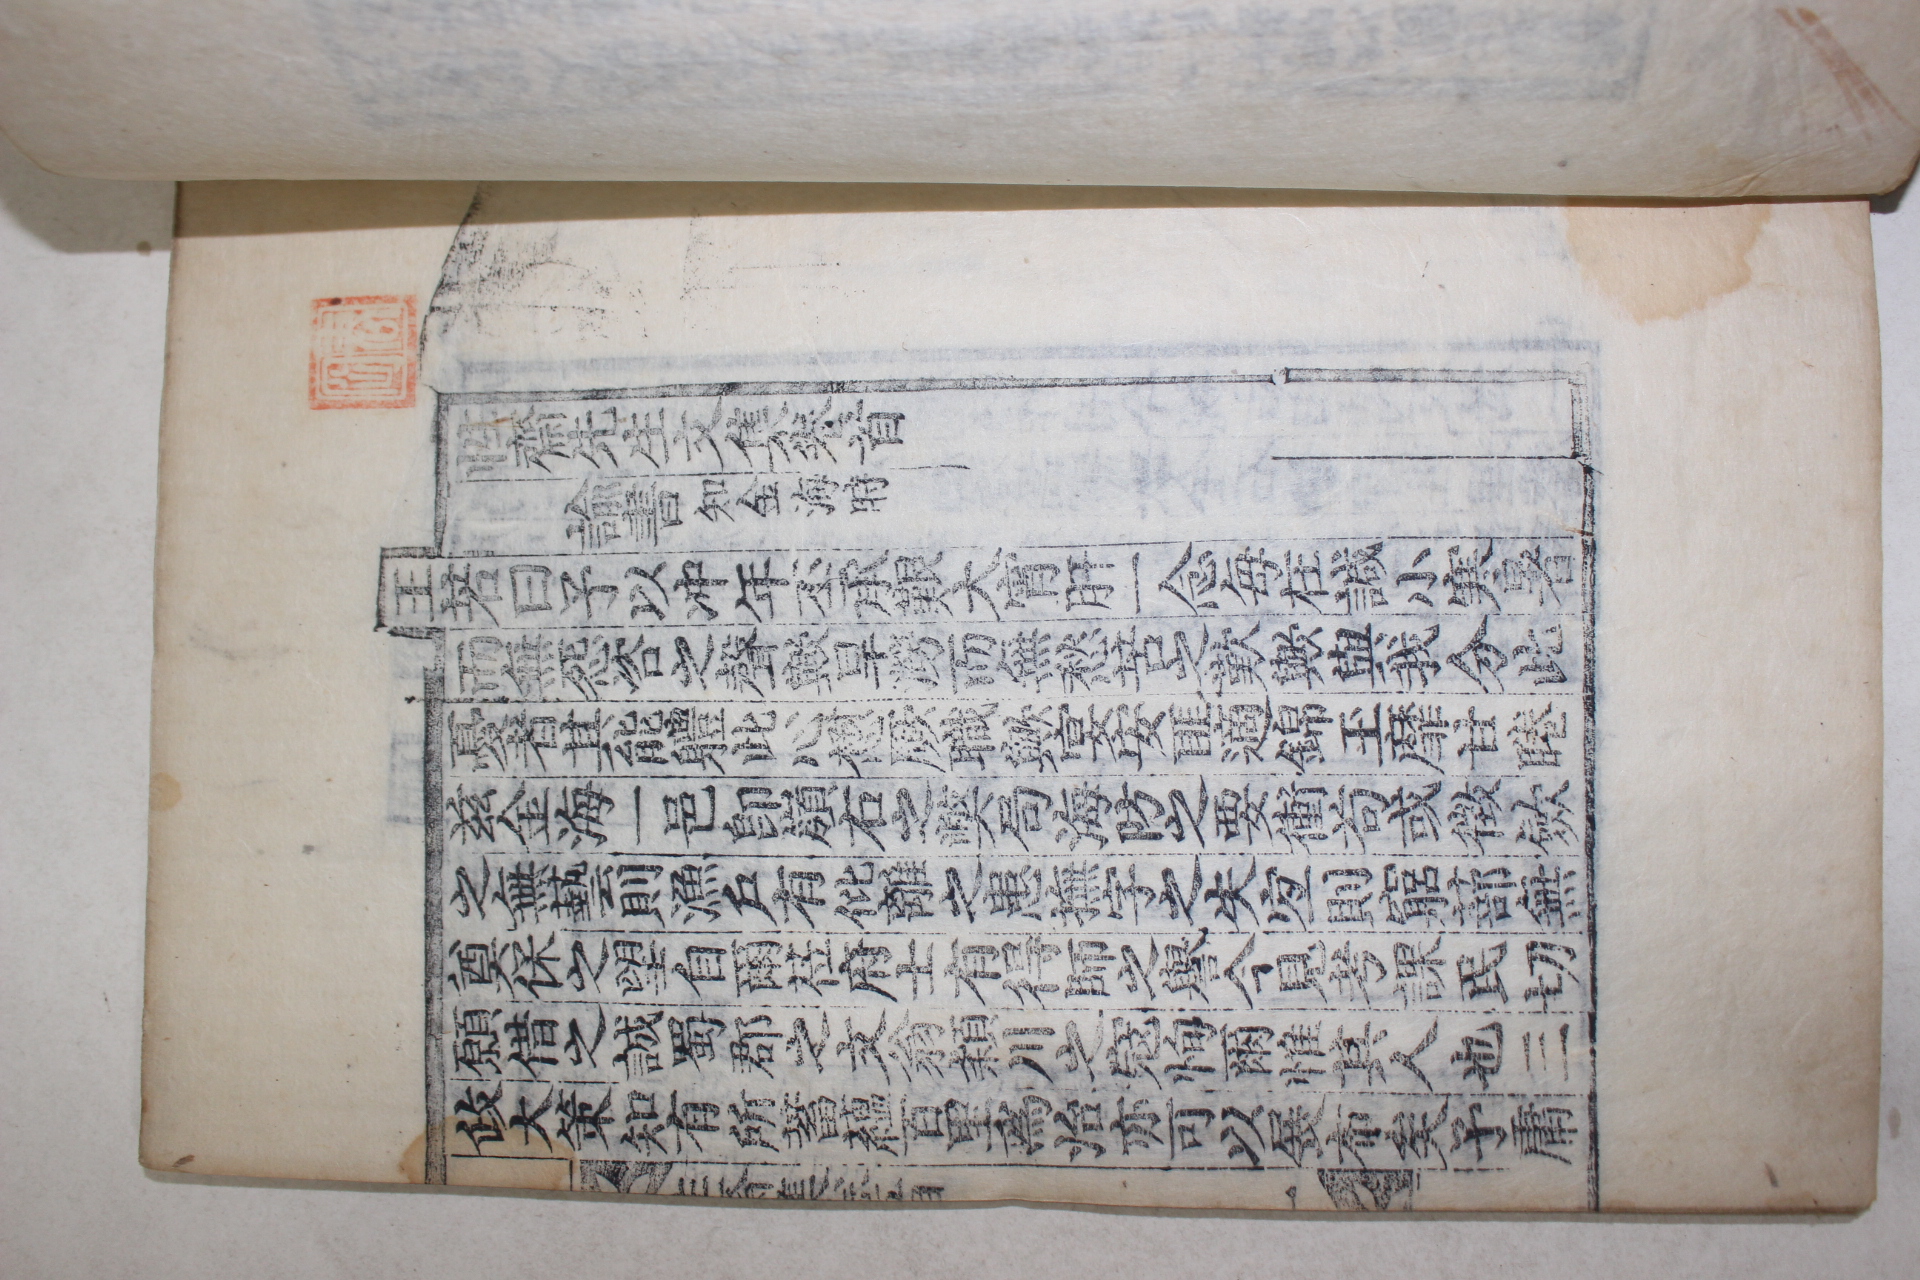 性齋先生文集卷首
諭書 知金海時
王若曰予以沖年丕承艱大宵肝一念每在諴小寒暑
而無怨咨之聲歟旱澇而無愁苦之歎歟與我分此
憂者其能軆此心懋厥職歟宴安匪適錦玉靡甘睠
玆金海一邑卽嶺右之獘局海防之要衝苟或徵斂
之無藝則漁戶有仳離之患撫字之失宜則窮蔀無
奠保之望自爾莅府士有得師之譽今見考課民切
願借之誠蜀郡之文翁潁川之寇恂爾惟其人也三
政大策知有所蓄蘊百里爲治亦可以展布矣予庸